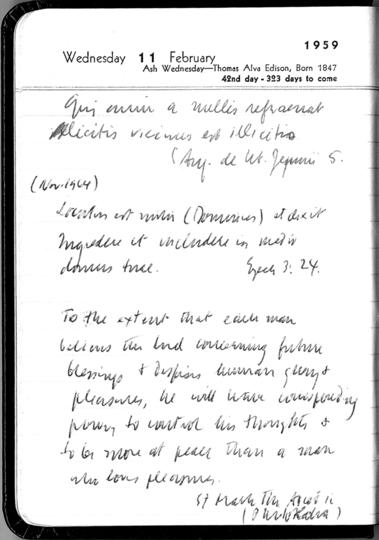 1959
Wednesday 11 February
Ash Wednesday—Thomas Alva Edison, Born 1847
42nd day - 323 days to come
Qui enim a nullis refraenat
illicitis vicinus est illicitis
(Aug. de Ut. Jejunii 5.
(Nov. 1964)
Locutus est mihi (Dominus) et dixit
Ingredere et includere in medio
domus tuae. Ezech 3. 24.
To the extent that each man
believes the Lord concerning future
blessings & despises human glory &
pleasures, he will have corresponding
power to control his thoughts &
to be more at peace than a man
who loves pleasures.
St Mark the Ascetic
(Philokalia)